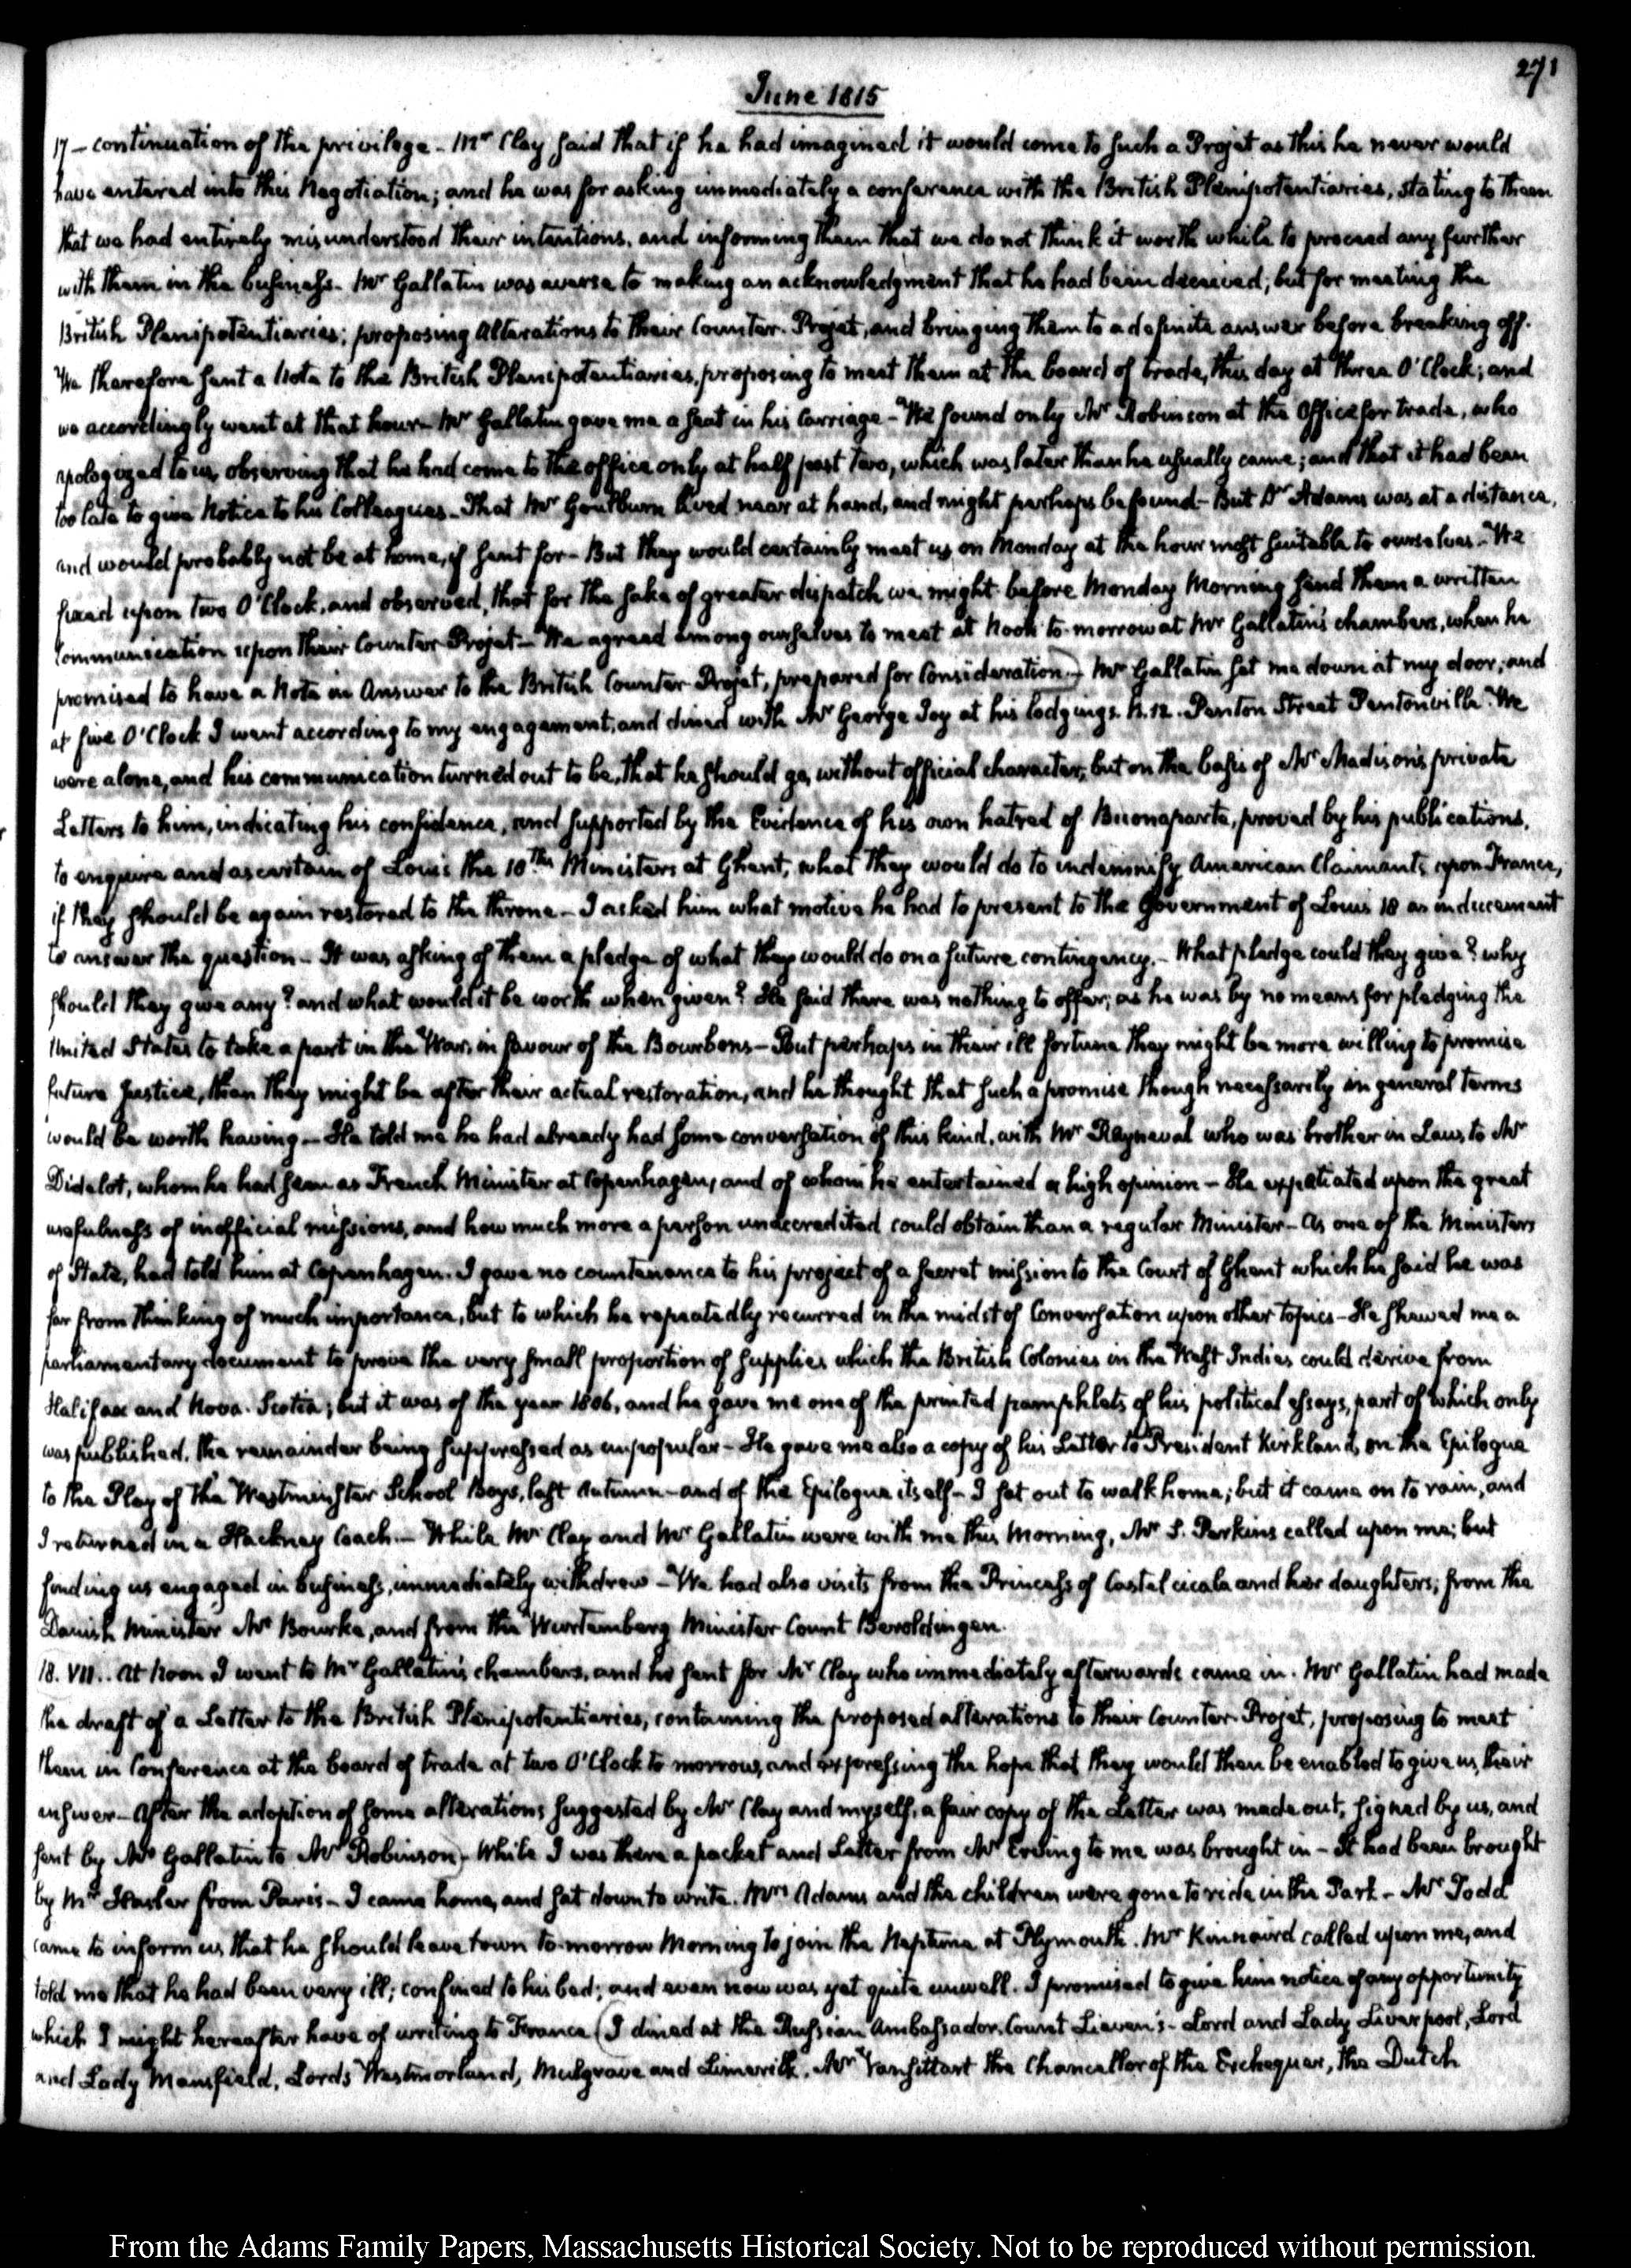 271
June 1815
17 - continuation of the privilege - Mr Clay said that if he had imagined it would come to such a Projet as this he never would
have entered into this Negotiation; and he was for asking immediately a conference with the British Plenipotentiaries, stating to them
that we had entirely misunderstood their intentions, and informing them that we do not think it worth while to proceed any further
with them in the business. Mr Gallatin was averse to making an acknowledgment that he had been deceived; but for meeting the
British Plenipotentiaries; proposing Alterations to their Counter-Projet, and bringing them to a definite answer before breaking off.
We therefore sent a Note to the British Plenipotentiaries, proposing to meet them at the board of trade, this day at three O'Clock; and
we accordingly went at that hour - Mr Gallatin gave me a seat in his Carriage - We found only Mr Robinson at the Office for trade, who
apologized to us, observing that he had come to the office only at half past two, which was later than he usually came; and that it had been
too late to give Notice to his Colleagues - That Mr Goulburn lived near at hand, and might perhaps be found - But Dr Adams was at a distance,
and would probably not be at home, if sent for - But they would certainly meet us on Monday at the hour most suitable to ourselves - We
fixed upon two O'Clock, and observed, that for the sake of greater dispatch we might before Monday Morning send them a written
Communication upon their Counter-Projet - We agreed among ourselves to meet at Noon to-morrow at Mr Gallatin's chambers, when he
promised to have a Note in Answer to the British Counter-Projet, prepared for Consideration) Mr Gallatin set me down at my door; and
at five O'Clock I went according to my engagement, and dined with Mr George Joy at his lodgings. N. 12. Penton Street Pentonville. We
were alone, and his communication turned out to be, that he should go, without official character, but on the basis of Mr Madison's private
Letters to him, indicating his confidence, and supported by the Evidence of his own hatred of Buonaparte, proved by his publications,
to enquire and ascertain of Louis the 18th Ministers at Ghent, what they would do to indemnify American Claimants upon France,
if they should be again restored to the throne - I asked him what motive he had to present to the Government of Louis 18 as inducement
to answer the question - It was asking of them a pledge of what they would do on a future contingency. - What pledge could they give? why
should they give any? and what would it be worth when given? He said there was nothing to offer; as he was by no means for pledging the
United States to take a part in the War, in favour of the Bourbons - But perhaps in their ill fortune they might be more willing to promise
future justice, than they might be after their actual restoration, and he thought that such a promise though necessarily in general terms
would be worth having - He told me he had already had some conversation of this kind, with Mr Rayneval who was brother in Law, to Mr
Didelot, whom he had seen as French Minister at Copenhagen, and of whom he entertained a high opinion - He expatiated upon the great
usefulness of inofficial missions, and how much more a person unaccredited could obtain than a regular Minister - As one of the Ministers
of State, had told him at Copenhagen. I gave no countenance to his project of a secret mission to the Court of Ghent which he said he was
far from thinking of much importance, but to which he repeatedly recurred in the midst of Conversation upon other topics - He shewed me a
parliamentary document to prove the very small proportion of supplies which the British Colonies in the West Indies could derive from
Halifax and Nova-Scotia; but it was of the year 1806, and he gave me one of the printed pamphlets of his political essays, part of which only
was published, the remainder being suppressed as unpopular - He gave me also a copy of his Letter to President Kirkland, on the Epilogue
to the Play of the Westminster School Boys, last Autumn - and of the Epilogue itself - I set out to walk home; but it came on to rain, and
I returned in a Hackney Coach - While Mr Clay and Mr Gallatin were with me this Morning, Mr S. Perkins called upon me; but
finding us engaged in business, immediately withdrew - We had also visits from the Princess of Castelcicala and her daughters; from the
Danish Minister Mr Bourke, and from the Wurtemberg Minister Count Beroldingen.
18. VII.. At Noon I went to Mr Gallatin's chambers, and he sent for Mr Clay who immediately afterwards came in. Mr Gallatin had made
the draft of a Letter to the British Plenipotentiaries, containing the proposed alterations to their Counter-Projet, proposing to meet
them in Conference at the board of trade at two O'Clock to morrow, and expressing the hope that they would then be enabled to give us, their
answer - After the adoption of some alterations suggested by Mr Clay and myself, a fair copy of the Letter was made out, signed by us, and
sent by Mr Gallatin to Mr Robinson) - While I was there a packet and Letter from Mr Erving to me was brought in - It had been brought
by Mr Hasler from Paris - I came home, and sat down to write. Mrs Adams and the children were gone to ride in the Park - Mr Todd
came to inform us that he should leave town to-morrow Morning to join the Neptune at Plymouth. Mr Kinnaird called upon me, and
told me that he had been very ill; confined to his bed; and even now was yet quite unwell. I promised to give him notice of any opportunity
which I might hereafter have of writing to France (I dined at the Russian Ambassador, Count Lieven's - Lord and Lady Liverpool, Lord
and Lady Mansfield, Lords Westmorland, Mulgrave and Limerick. Mr Vansittart the Chancellor of the Exchequer, the Dutch
From the Adams Family Papers, Massachusetts Historical Society. Not to be reproduced without permission.